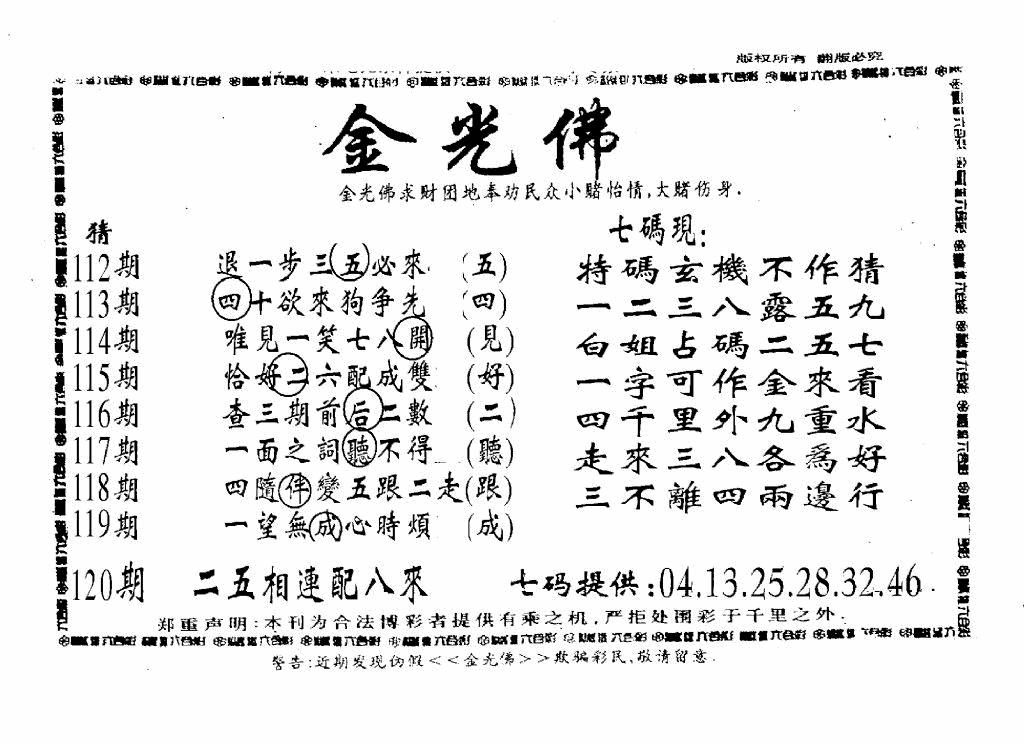 版权所有 翻版必究
金光佛
金光佛求财团地奉劝民众小赌怡情,大赌伤身.
猜
七碼現:
112期 退一步三五必來 (五)
113期 四十欲來狗争先 (四)
114期 唯見一笑七八開 (見)
115期 恰好二六配成雙 (好)
116期 查三期前后二數 (二)
117期 一面之詞聽不得 (聽)
118期 四隨伴變五跟二走(跟)
119期 一望無成心時煩 (成)
特碼玄機不作猜
一二三八露五九
白姐占碼二五七
一字可作金來看
四千里外九重水
走來三八各為好
三不離四兩邊行
120期 二五相連配八來 七码提供:04.13.25.28.32.46.
郑重声明:本刊为合法博彩者提供有乘之机,严拒处围彩于千里之外.
警告:近期发现伪假<<金光佛>>欺骗彩民,敬请留意.